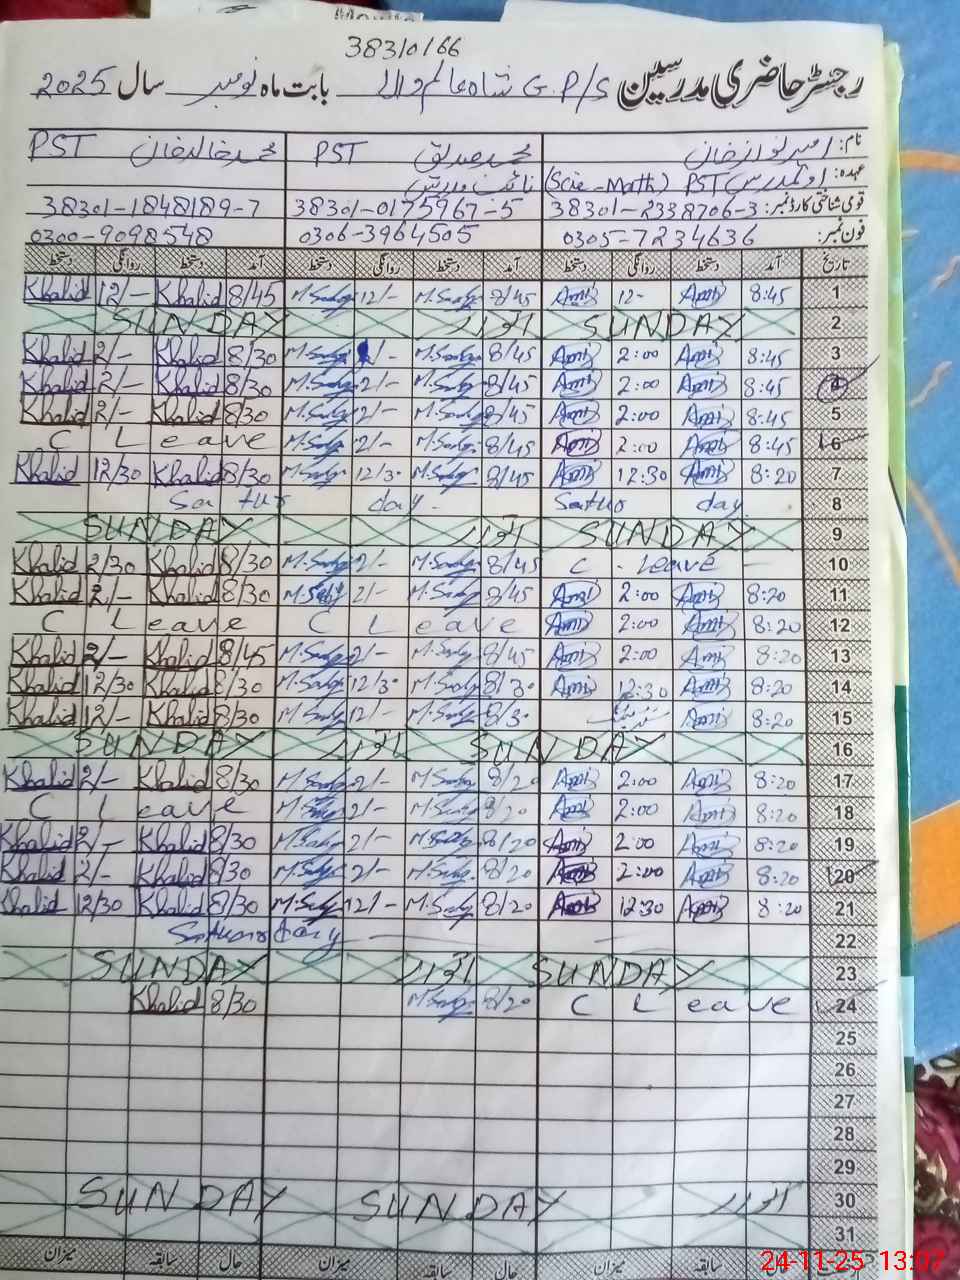 38310166
رجسٹر حاضری مدرسین G.P/S شاہ عالم والا بابت ماہ نومبر سال 2025
نام: امیر نواز خان محمد صدیق PST محمد خالد خان PST
عہدہ: PST (Scie-Math)
قومی شناختی کارڈ نمبر: 38301-2338706-3 38301-0175967-5 38301-1848189-7
فون نمبر: 0305-7234636 0306-3964505 0300-9098548
تاریخ آمد دستخط روانگی دستخط آمد دستخط روانگی دستخط آمد دستخط روانگی دستخط
1 8:45 Ami 12- Ami 8/45 M.Sadiq 12/- M.Sadiq 8/45 Khalid 12/- Khalid
2 SUNDAY اتوار SUNDAY
3 8:45 Ami 2:00 Ami 8/45 M.Sadiq /- M.Sadiq 8/30 Khalid 2/- Khalid
4 8:45 Ami 2:00 Ami 8/45 M.Sadiq 2/- M.Sadiq 8/30 Khalid 2/- Khalid
5 8:45 Ami 2:00 Ami 8/45 M.Sadiq 2/- M.Sadiq 8/30 Khalid 2/- Khalid
6 8:45 Ami 2:00 Ami 8/45 M.Sadiq 2/- M.Sadiq C Leave
7 8:20 Ami 12:30 Ami 8/45 M.Sadiq 12/30 M.Sadiq 8/30 Khalid 12/30 Khalid
8 Satur day Satur day
9 SUNDAY اتوار SUNDAY
10 C. Leave 8/45 M.Sadiq 2/- M.Sadiq 8/30 Khalid 2/30 Khalid
11 8:20 Ami 2:00 Ami 8/45 M.Sadiq 2/- M.Sadiq 8/30 Khalid 2/- Khalid
12 8:20 Ami 2:00 Ami C Leave C Leave
13 8:20 Ami 2:00 Ami 8/45 M.Sadiq 2/- M.Sadiq 8/45 Khalid 2/- Khalid
14 8:20 Ami 12:30 Ami 8/30 M.Sadiq 12/30 M.Sadiq 8/30 Khalid 12/30 Khalid
15 8:20 Ami 8/30 M.Sadiq 12/- M.Sadiq 8/30 Khalid 12/- Khalid
16 SUNDAY اتوار SUNDAY
17 8:20 Ami 2:00 Ami 8/20 M.Sadiq 2/- M.Sadiq 8/30 Khalid 2/- Khalid
18 8:20 Ami 2:00 Ami 8/20 M.Sadiq 2/- M.Sadiq C Leave
19 8:20 Ami 2:00 Ami 8/20 M.Sadiq 2/- M.Sadiq 8/30 Khalid 2/- Khalid
20 8:20 Ami 2:00 Ami 8/20 M.Sadiq 2/- M.Sadiq 8/30 Khalid 2/- Khalid
21 8:20 Ami 12:30 Ami 8/20 M.Sadiq 12/- M.Sadiq 8/30 Khalid 12/30 Khalid
22 Saturday
23 SUNDAY اتوار SUNDAY
24 C Leave 8/20 M.Sadiq 8/30 Khalid
25
26
27
28
29
30 اتوار SUNDAY SUNDAY
31
حال سابقہ میزان حال سابقہ میزان
24-11-25 13:07